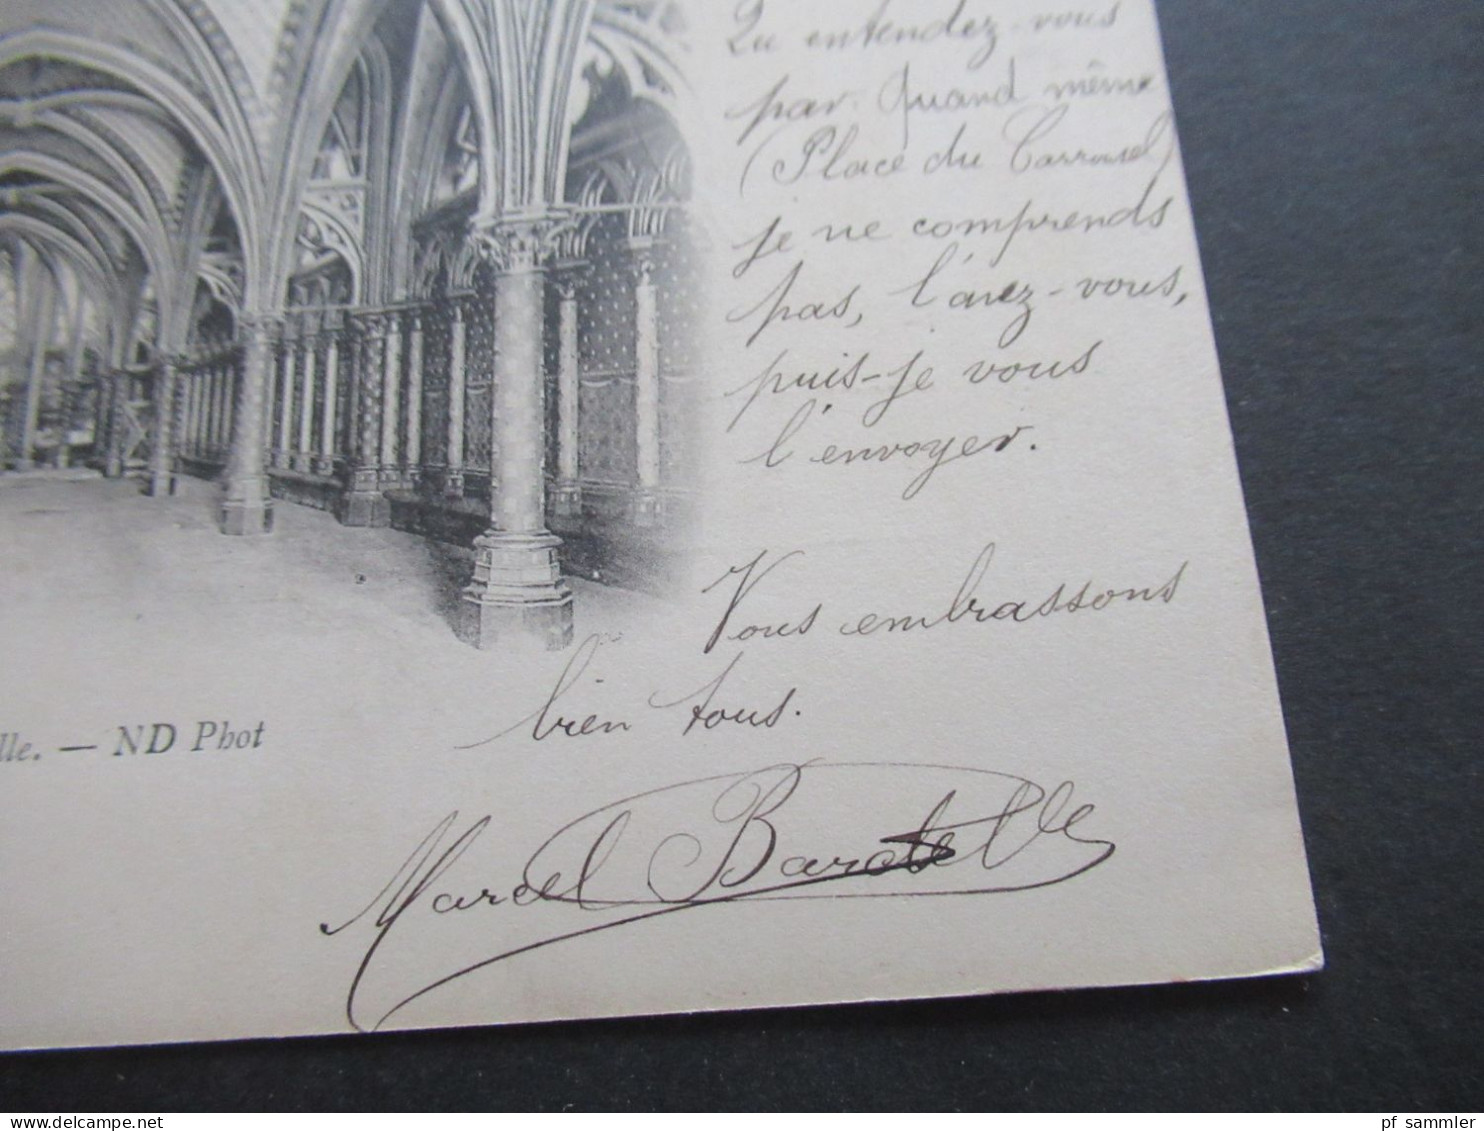 Qu'entendez-vous
par Quand même
(Place du Carrousel)
je ne comprends
pas, l'avez-vous,
puis-je vous
l'envoyer.
Vous embrassons
bien tous.
lle. — ND Phot
Marcel
pf_sammler